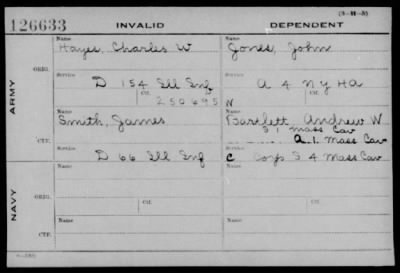 (3-111-3)
126633 INVALID DEPENDENT
Name Name
Hayes, Charles W Jones, John
ORIG.
Service Service
D 154 Ill Inf A 4 N Y H A
Ctf. Ctf.
250695 W
ARMY
Name Name
Smith, James Bartlett, Andrew W
S 1 Mass Cav
CTF.
Service A. 1. Mass Cav
D 66 Ill Inf C Corps S 4 Mass Cav
Name Name
ORIG.
Service Service
Ctf. Ctf.
NAVY
Name Name
CTF.
Service Service